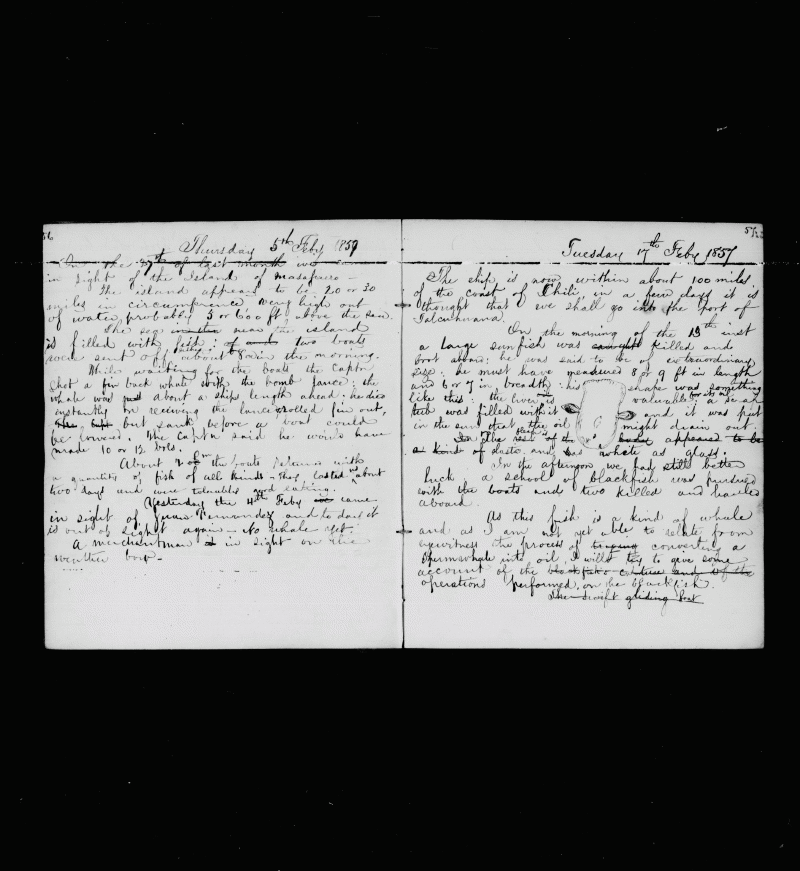 56
Thursday 5th Feby 1857
On the 27th of last month we
in sight of the Island of masafuero -
The island appears to be 20 or 30
miles in circumference very high out
of water, probably 5 or 600 ft above the sea.
The sea near the island
is filled with fish: two boats
were sent off without in the morning.
While waiting for the boats the Captn
shot a fin back whale with the bomb lance: the
whale was just about a ships length ahead: he died
instantly on receiving the lance, rolled fin out,
but sank before a boat could
be lowered. The Captn said he would have
made 10 or 12 bbls.
About 2 the boats returned with
a quantity of fish of all kinds - they lasted us about
two days and were tolerable good eating.
Yesterday the 4th Feby we came
in sight of Juan Fernandez and to day it
is out of sight again - No whale yet.
A merchantman is in sight on the
weather bow -
57
Tuesday 17th Feby 1857
The ship is now within about 100 miles
of the coast of Chili in a few days it is
thought that we shall go into the port of
Talcuhuana.
On the morning of the 15th inst
a large sunfish was caught killed and
brot aboard: he was said to be of extraordinary
size: he must have measured 8 or 9 ft in length
and 6 or 7 in breadth: his shape was something
like this: the liver is valuable: a
tub was filled with it and it was put
in the sun that the oil might drain out.
In the of the appeared to be
a kind of paste and was white as glass.
In the afternoon we had still better
luck a school of blackfish was pursued
with the boats and two killed and hauled
aboard.
As this fish is a kind of whale
and as I am not yet able to relate from
eyewitness the process of trying converting a
spermwhale into oil, I will try to give some
account of the
operations performed on the blackfish.
The swift gliding boat